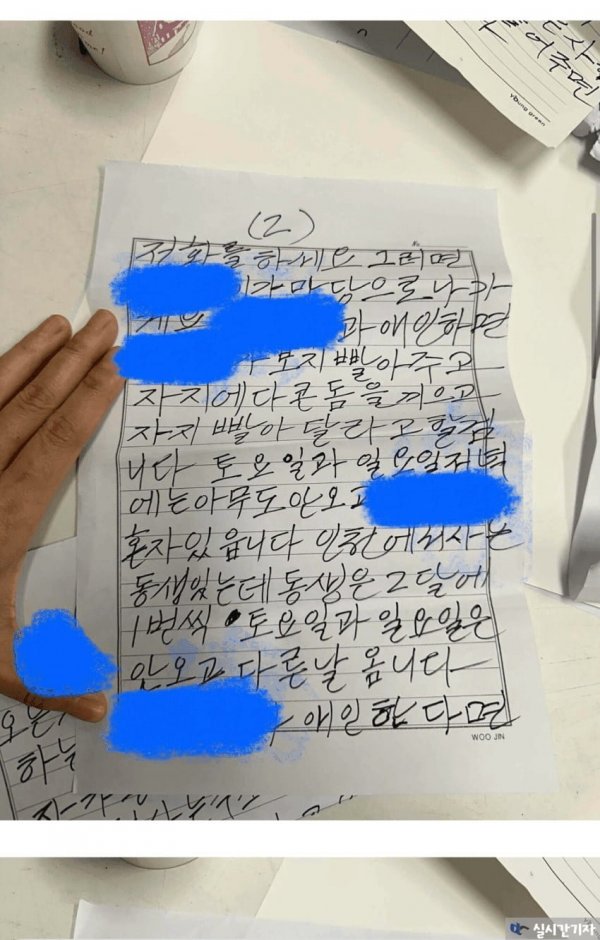 어주면
young green
(2)
No.
전화를하세요 그러면
가마담으로나가
게요
과애인하면
가 모지빨아주고
자지에다콘돔을끼우고
자지빨아달라고할겁
니다 토요일과 일요일저녁
에는아무도안오고
혼자있읍니다 인천에서사는
동생있는데 동생은 2달에
1번씩 토요일과 일요일은
안오고 다른날 옵니다
애인한다면
WOO JIN
하는
실시간기자